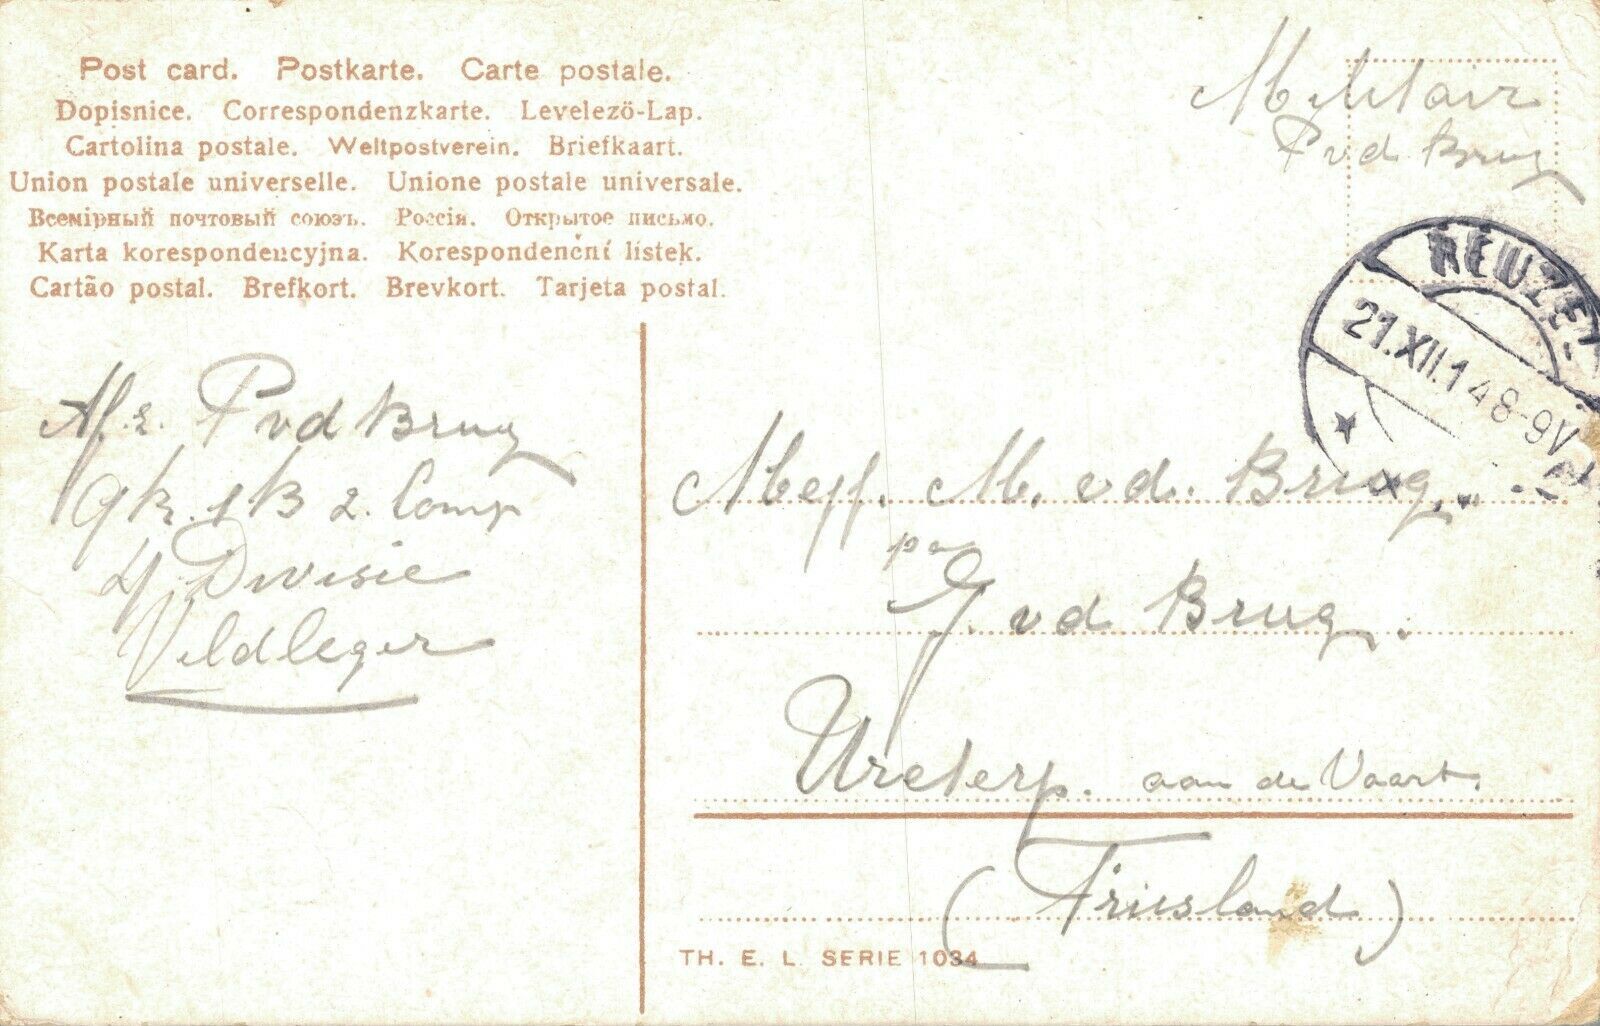 Post card. Postkarte. Carte postale.
Dopisnice. Correspondenzkarte. Levelezö-Lap.
Cartolina postale. Weltpostverein. Briefkaart.
Union postale universelle. Unione postale universale.
Всемірный почтовый союзъ. Россія. Открытое письмо.
Karta korespondencyjna. Korespondenční lístek.
Cartão postal. Brefkort. Brevkort. Tarjeta postal.
Militair
P vd Brug
21.XII.14 8-9V
Afz. P vd Brug
1 B 2. Comp
4 Divisie
Veldleger
Mej. M. vd. Brug.
pa
J. vd Brug.
Ureterp. aan de Vaart.
(Friesland)
TH. E. L. SERIE 1034